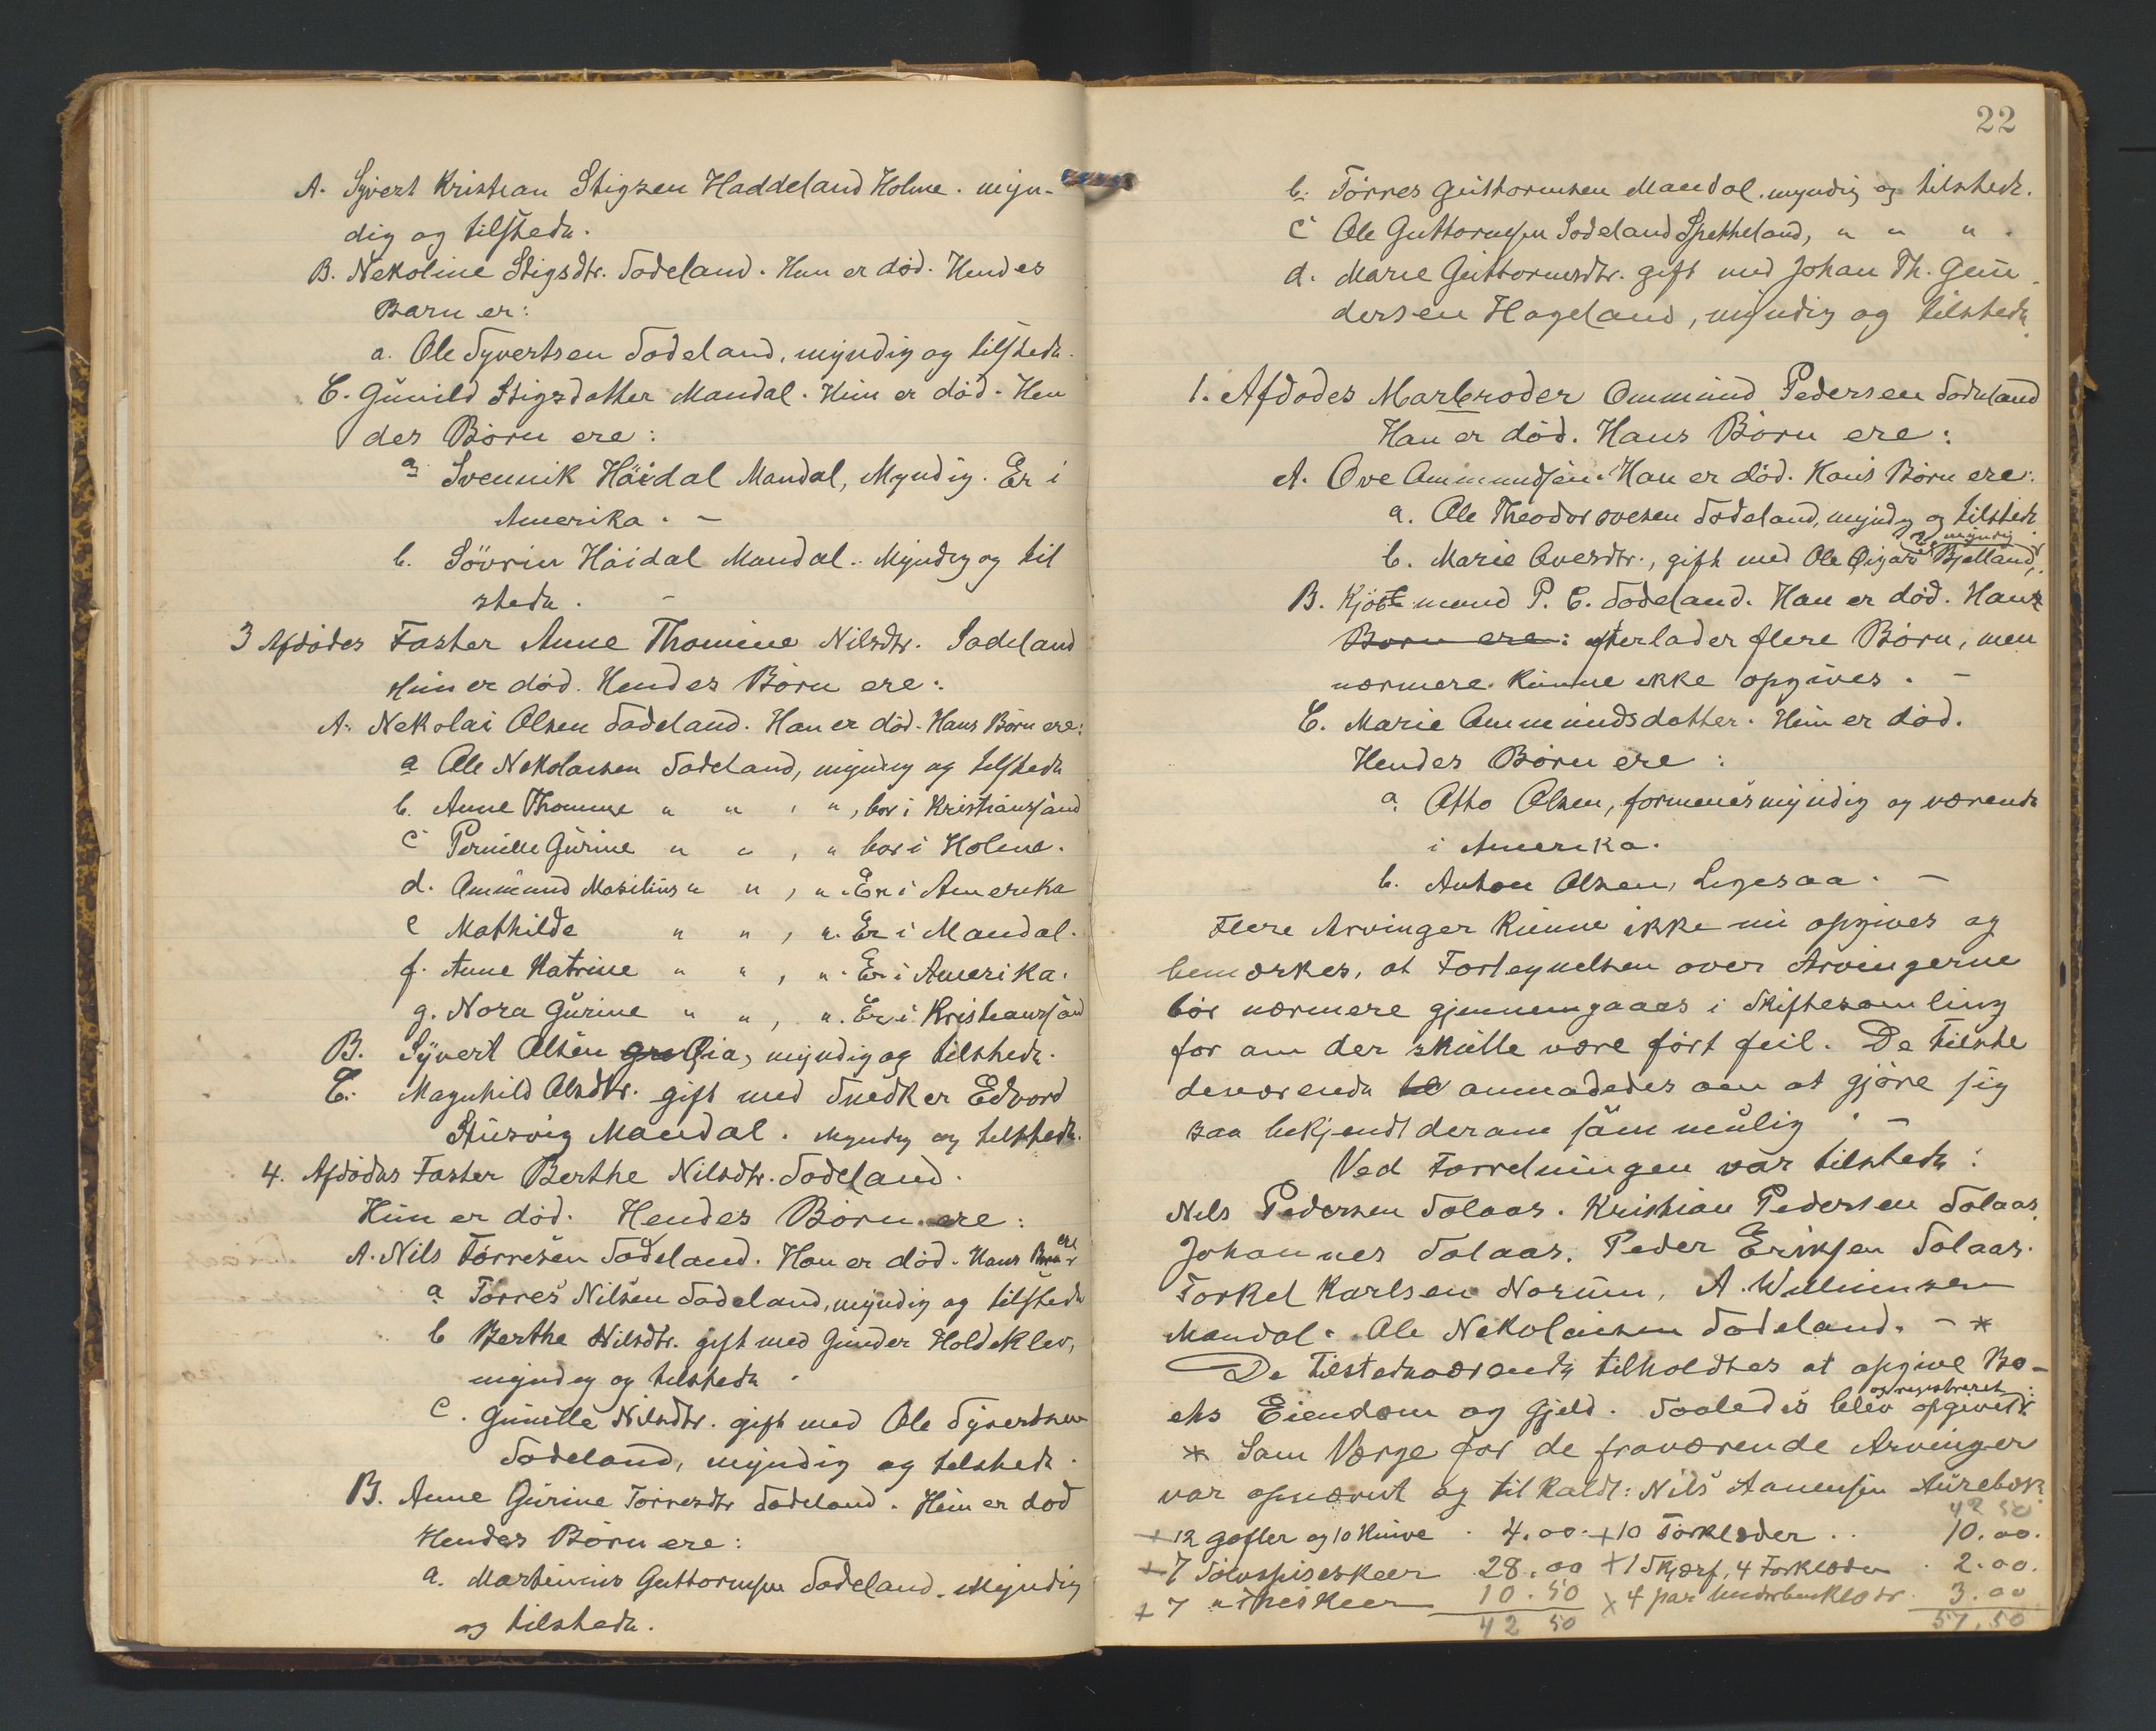 A. Syvert Kristian Stigsen Haddeland Holme. myn-
dig og tilstede.
B. Nekoline Stigsdtr. Sodeland. Hun er död. Hendes
Barn er:
a. Ole Syvertsen Sodeland, myndig og tilstede.
C. Gunild Stigsdatter Mandal. Hun er död. Hen
des Börn ere:
a. Svennik Höidal Mandal, Myndig. Er i
Amerika. -
b. Sövrin Höidal Mandal. Myndig og til
stede. -
3 Afdödes Faster Anne Thomine Nilsdtr. Sodeland
Hun er död. Hendes Börn ere:
A. Nekolai Olsen Sodeland. Han er död. Hans Börn ere:
a Ole Nekolaisen Sodeland, myndig og tilstede
b. Anne Thomine " " , ", bor i Kristianssand
c Pernille Gurine " " , " bor i Holme.
d. Ammund Masilius " " , ". Er i Amerika
e Mathilde " " , ". Er i Mandal.
f. Anne Katrine " " , ". Er i Amerika.
g. Nora Gurine " " , ". Er i Kristianssand
B. Syvert Olsen Öia, myndig og tilstede.
C. Magnhild Olsdtr. gift med Snedker Edvard
Stusvig Mandal. Myndig og tilstede.
4. Afdödes Faster Berthe Nilsdtr. Sodeland.
Hun er död. Hendes Börn ere:
A. Nils Törresen Sodeland. Han er död. Hans Börn ere
a Törres Nilsen Sodeland, myndig og tilstede
b Berthe Nilsdtr. gift med Gunder Holdeklev,
myndig og tilstede.
c. Gunille Nilsdtr. gift med Ole Syvertsen
Sodeland, myndig og tilstede.
B. Anne Gurine Törresdtr Sodeland. Hun er död
Hendes Börn ere:
a. Martinius Guttormsen Sodeland. Myndig
og tilstede.
22
b. Törres Guttormsen Mandal. myndig og tilstede.
c Ole Guttormsen Sodeland Spetteland, " " " .
d. Marie Guttormsdtr. gift med Johan Th. Gun
dersen Hageland, myndig og tilstede.
1. Afdödes Morbroder Ommund Pedersen Sodeland
Han er död. Hans Börn ere:
A. Ove Ommundsen. Han er död. Hans Börn ere:
a. Ole Theodor Ovesen Sodeland, myndig og tilstede
b. Marie Ovesdtr., gift med Ole Bjelland, er myndig
B. Kjöbmand P. C. Sodeland. Han er död. Hans
Börn ere: efterlader flere Börn, men
nærmere kunne ikke opgives. -
C. Marie Ommundsdatter. Hun er död.
Hendes Börn ere:
a. Otto Olsen, formenes myndig og værende
i Amerika.
b. Anton Olsen, Ligesaa. -
Flere Arvinger kunne ikke nu opgives og
bemærkes, at Fortegnelsen over Arvingerne
bör nærmere gjennemgaaes i Skiftesamling
for om der skulle være fört feil. De tilste
deværende anmodedes om at gjöre sig
saa bekjendt derom som mulig. -
Ved Forretningen var tilstede:
Nils Pedersen Solaas. Kristian Pedersen Solaas.
Johannes Solaas. Peder Eriksen Solaas.
Torkel Karlsen Norum, A. Williumsen
Mandal. Ole Nekolaisen Sodeland. - *
De Tilstedeværende tilholdtes at opgive Bo-
ets Eiendom og Gjeld. Saaledes blev opgivet og registreret:
* Som Værge for de fraværende Arvinger
var opnævnt og tilkaldt: Nils Aanensen Aurebæk
42 50
+ 12 gafler og 10 Knive . 4.00. + 10 Törklæder . . 10.00.
+ 7 Sölvspiseskeer 28.00 + 1 Skjærf, 4 Forklæder . 2.00.
+ 7 " Theskeer 10.50 x 4 par Underbenklæder. 3.00
42 50 57,50